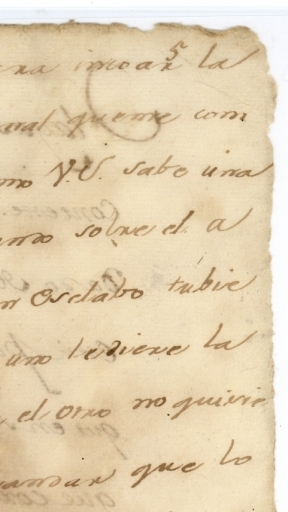 era incoar la
5
ural quenre com
mo V.S. sabe una
ando sobre el a
n Esclabo tubie
uno lediere la
el otro no quirie
andar que lo